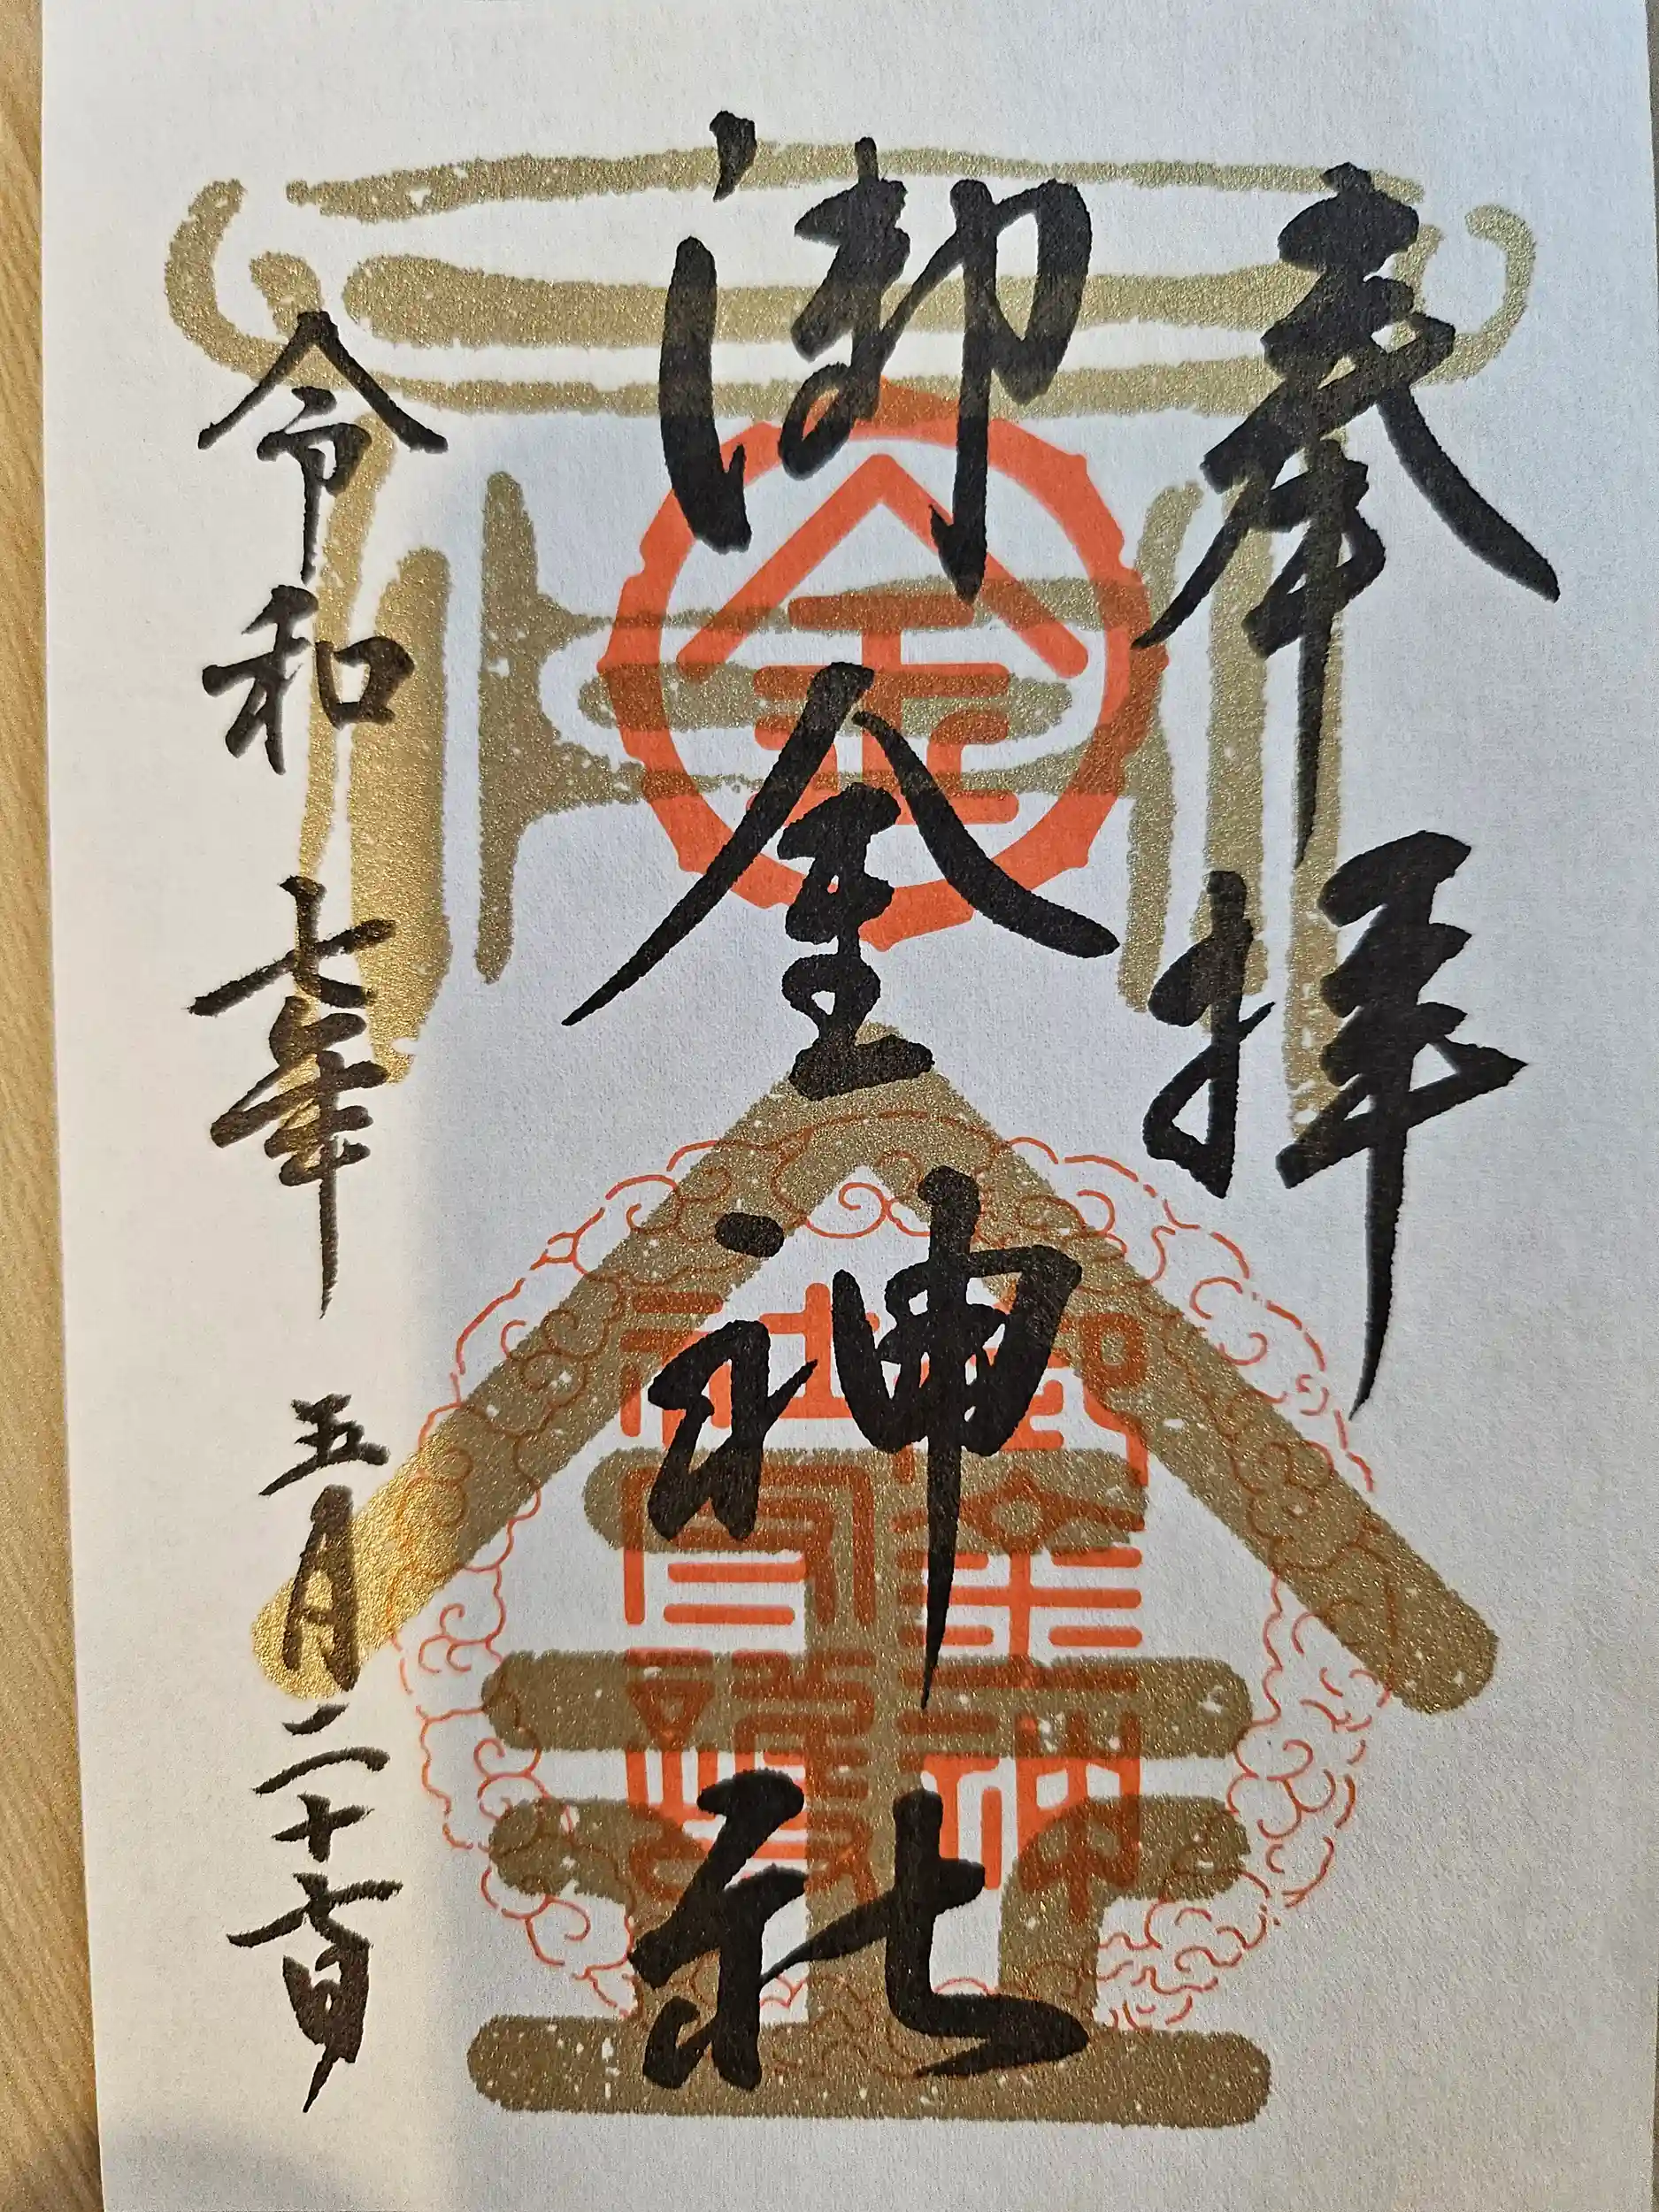 奉拝
御金神社
令和七年 五月二十七日
金
金
御金神
社